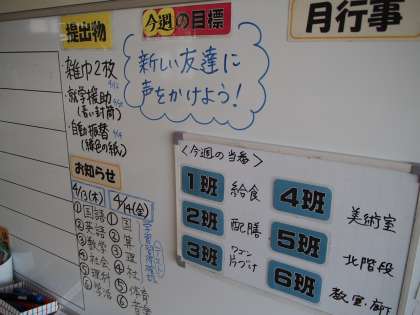 提出物
雑巾2枚
・就学援助
(青い封筒)
・自動振替
(緑色の紙)
今週の目標
新しい友達に
声をかけよう!
月行事
お知らせ
4/13(木)
①国語
②英語
③数学
④社会
⑤理科
⑥学活
4/14(金)
①国
②算
③理
④社
⑤体育
⑥音楽
学習習得確認
テスト
<今週の当番>
1班 給食
2班 配膳
3班 ワゴン
片づけ
4班 美術室
5班 北階段
6班 教室・廊下